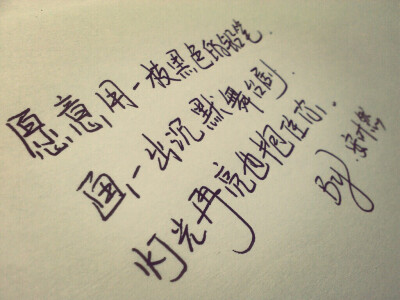 愿意用一枝黑色的铅笔.
画一出沉默舞台剧.
灯光再亮也抱住你.
By